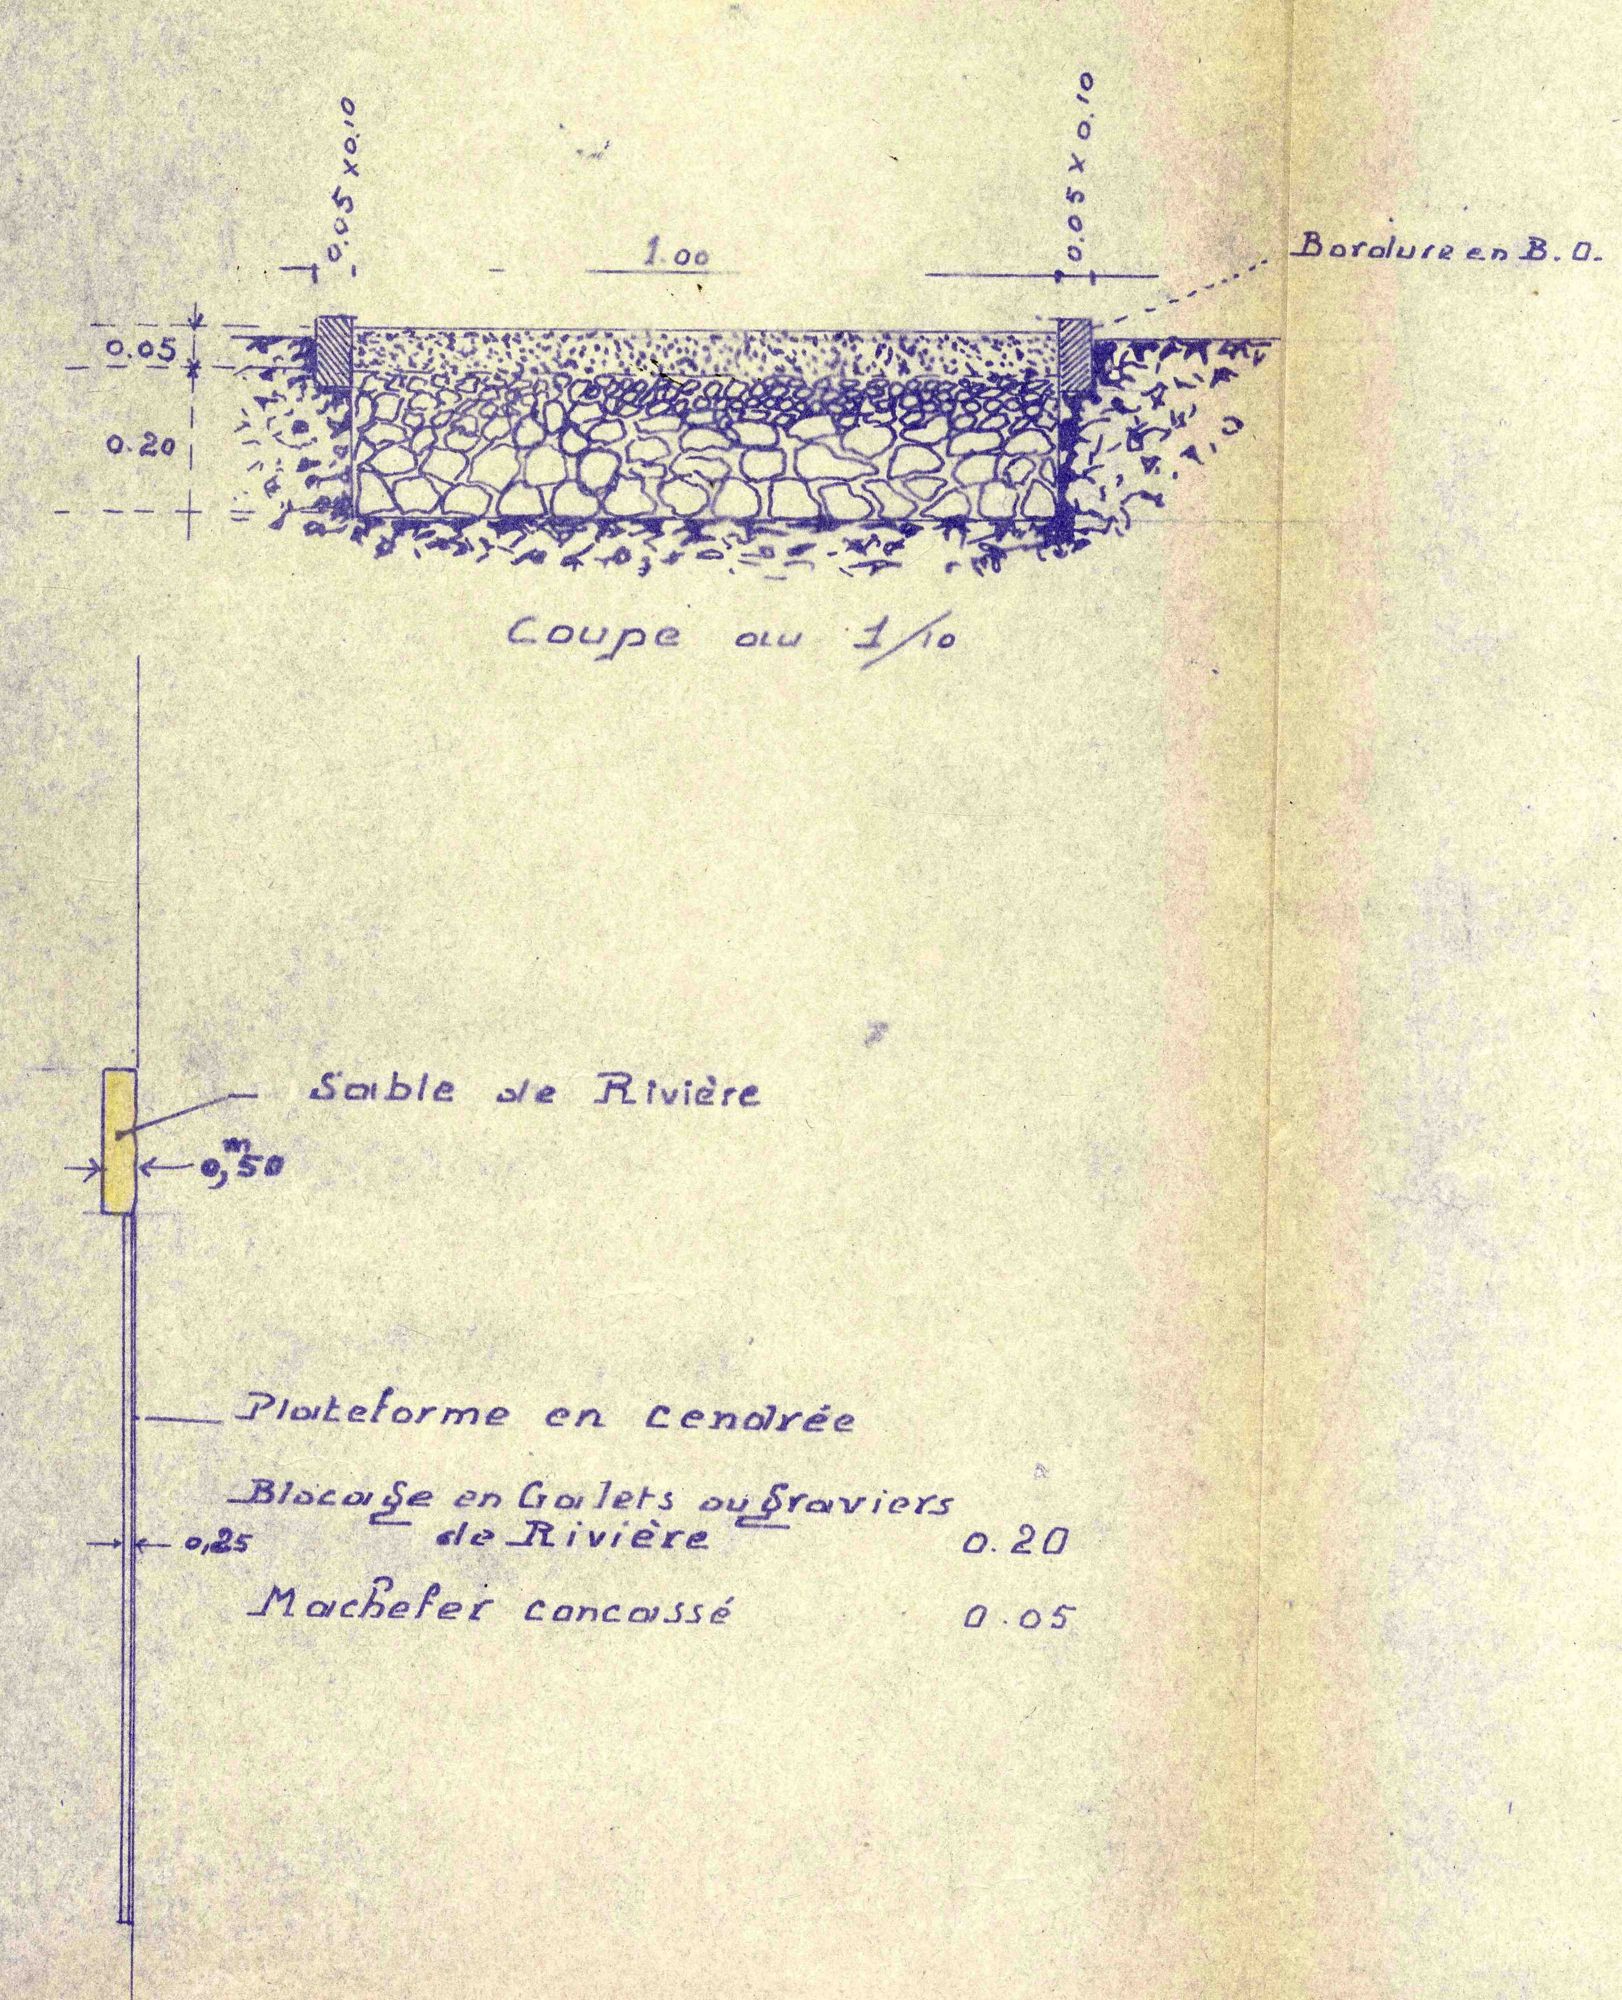 0.05 x 0.10
0.05 x 0.10
1.00
Bordure en B.O.
0.05
0.20
Coupe au 1/10
Sable de Rivière
0,m50
Plateforme en cendrée
Blocage en Galets ou graviers
de Rivière 0.20
0,25
Machefer concassé 0.05